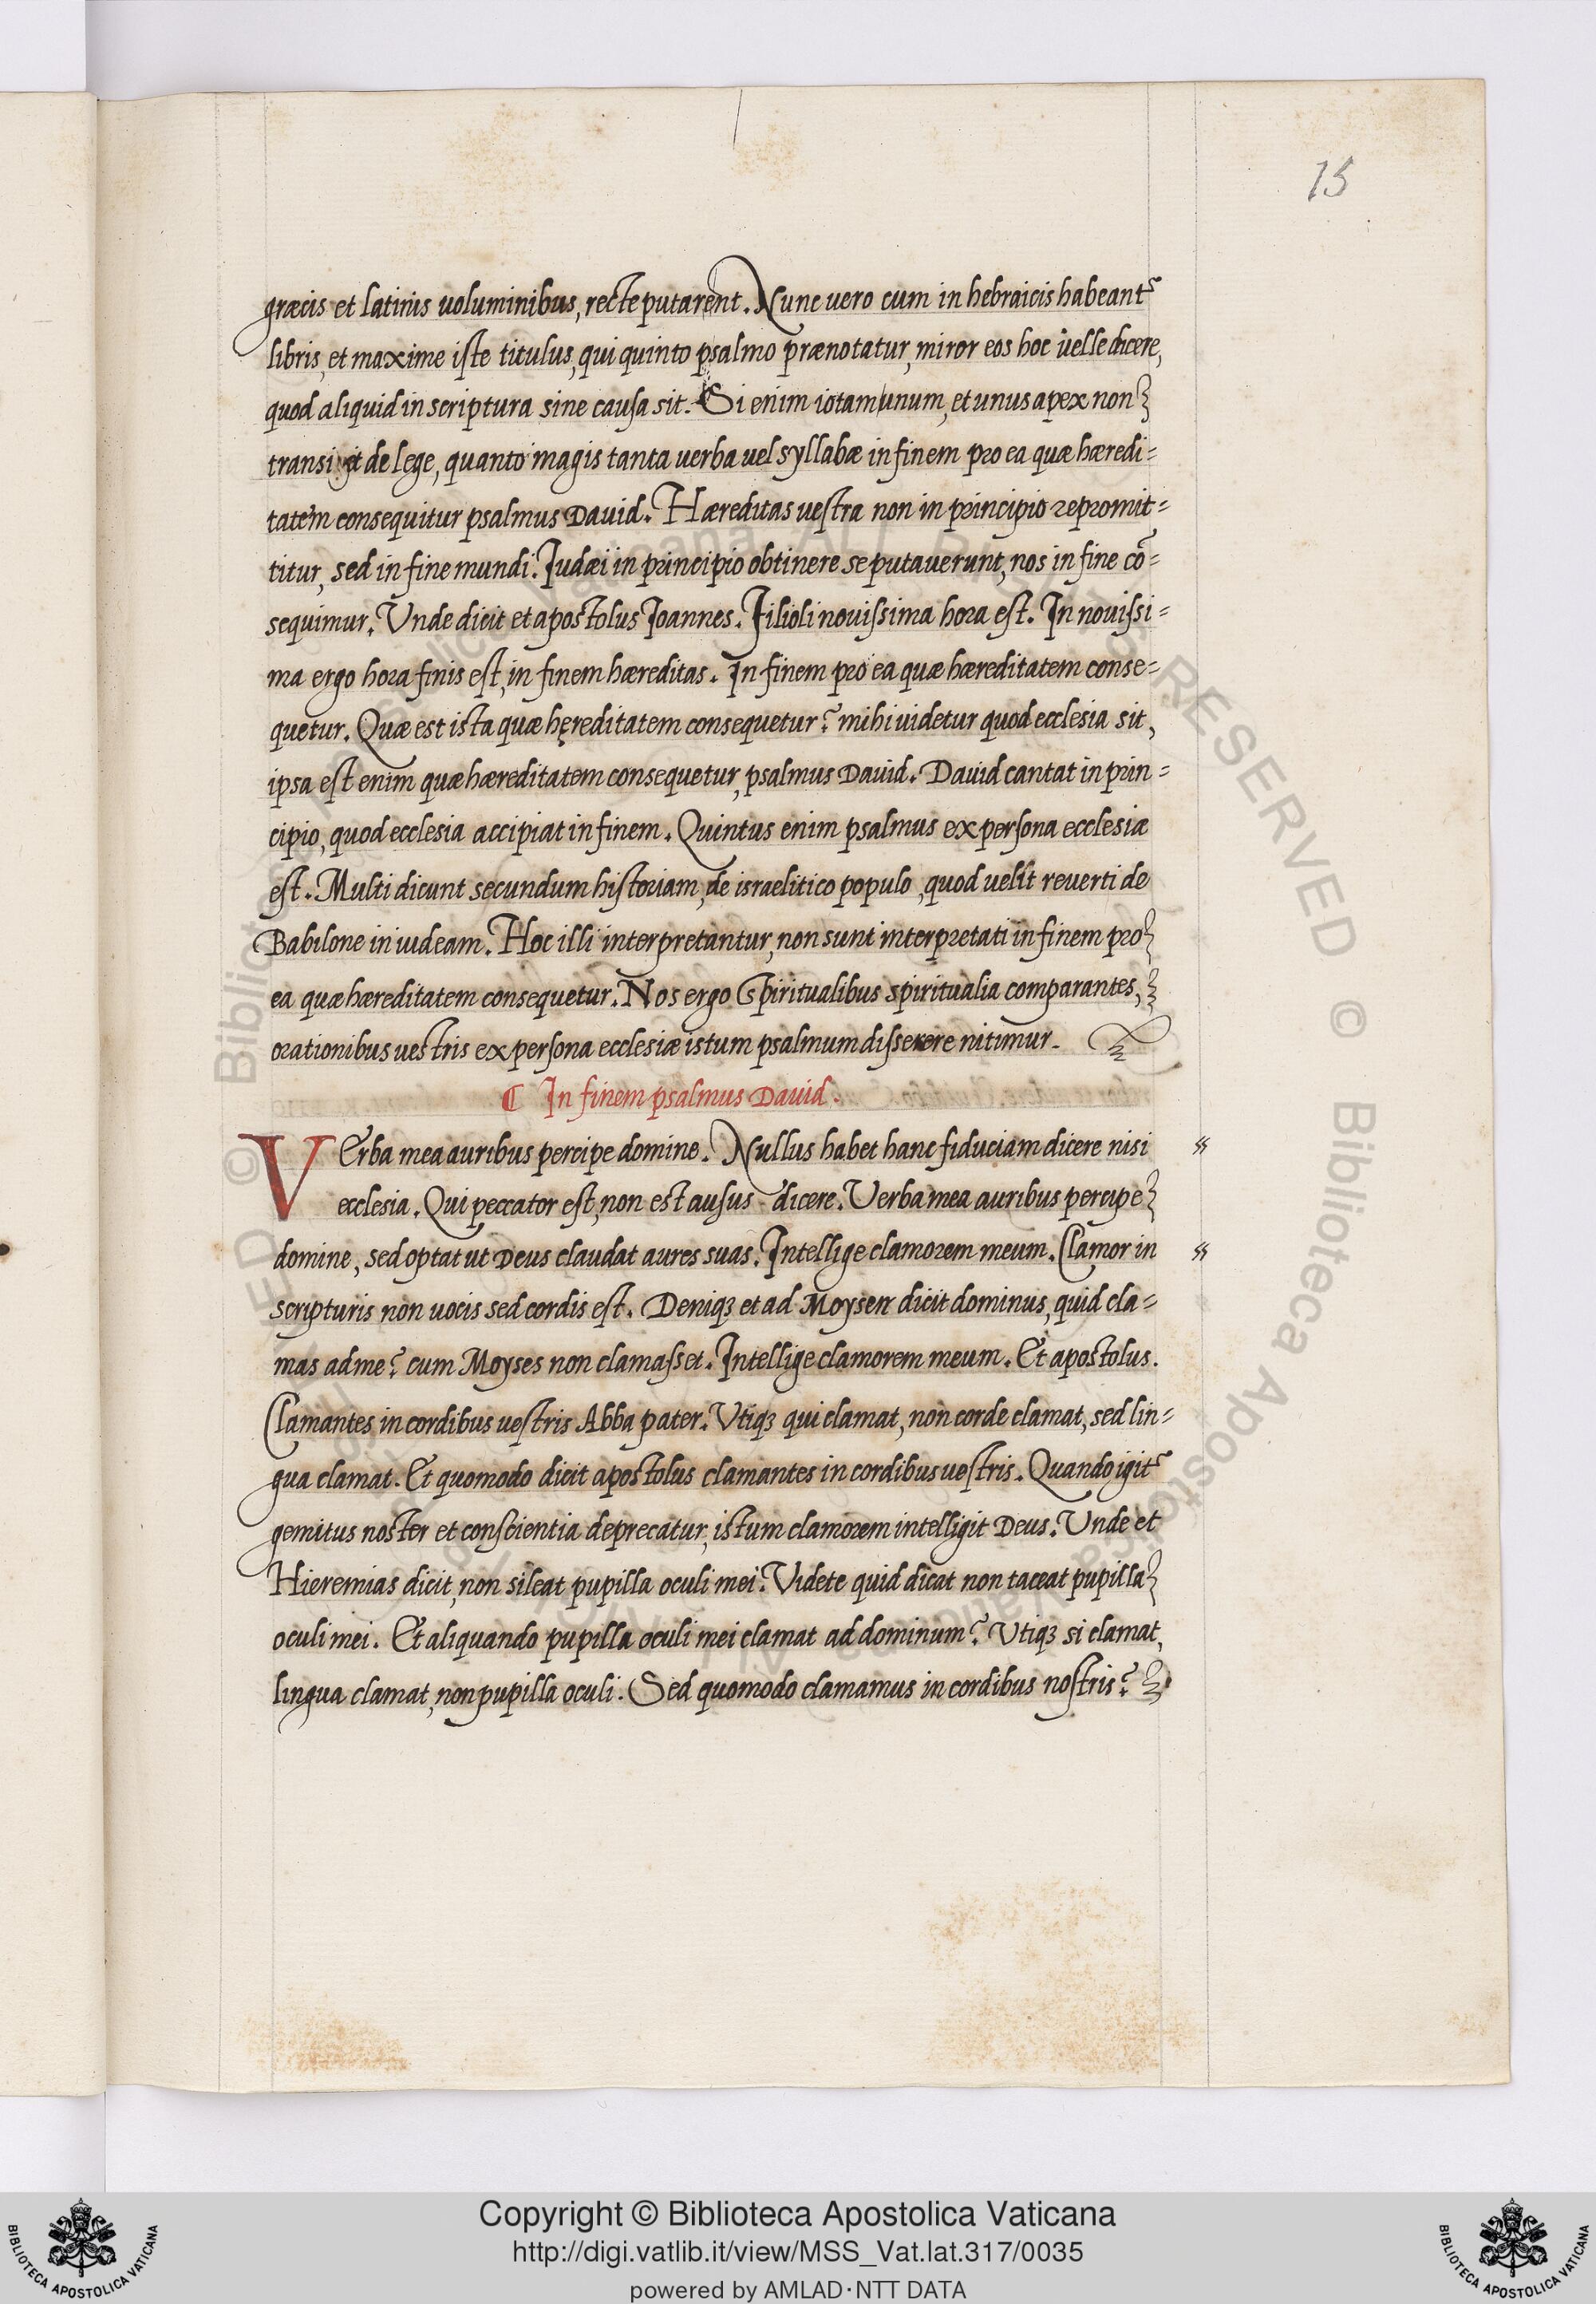 15
græcis et latinis uoluminibus, recte putarent. Nunc uero cum in hebraicis habeant᷒
libris, et maxime iste titulus, qui quinto psalmo prænotatur, miror eos hoc uelle dicere,
quod aliquid in scriptura sine causa sit. Si enim iotam unum, et unus apex non
de lege, quanto magis tanta uerba uel syllabæ in finem pro ea quæ hæredi=
tatem consequitur psalmus David. Hæreditas uestra non in principio repromit=
titur, sed in fine mundi. Judæi in principio obtinere se putauerunt, nos in fine cō=
sequimur. Unde dicit et apostolus Joannes. Filioli nouissima hora est. In nouissi=
ma ergo hora finis est, in finem hæreditas. In finem pro ea quæ hæreditatem conse=
quetur. Quæ est ista quæ hęreditatem consequetur? mihi uidetur quod ecclesia sit,
ipsa est enim quæ hæreditatem consequetur, psalmus David. David cantat in prin=
cipio, quod ecclesia accipiat in finem. Quintus enim psalmus ex persona ecclesiæ
est. Multi dicunt secundum historiam, de israelitico populo, quod uelit reuerti de
Babilone in iudeam. Hoc illi interpretantur, non sunt interpretati in finem pro
ea quæ hæreditatem consequetur. Nos ergo spiritualibus spiritualia comparantes,
orationibus uestris ex persona ecclesiæ istum psalmum disserere nitimur.
¶ In finem psalmus David.
VErba mea auribus percipe domine. Nullus habet hanc fiduciam dicere nisi
ecclesia. Qui peccator est, non est ausus dicere. Uerba mea auribus percipe
domine, sed optat ut Deus claudat aures suas. Intellige clamorem meum. Clamor in
scripturis non uocis sed cordis est. Deniqꝫ et ad Moysen dicit dominus, quid cla=
mas ad me? cum Moyses non clamasset. Intellige clamorem meum. Et apostolus.
Clamantes in cordibus uestris Abba pater. Vtiqꝫ qui clamat, non corde clamat, sed lin=
gua clamat. Et quomodo dicit apostolus clamantes in cordibus uestris. Quando igit᷒
gemitus noster et conscientia deprecatur, istum clamorem intelligit Deus. Unde et
Hieremias dicit, non sileat pupilla oculi mei. Videte quid dicat non taceat pupilla
oculi mei. Et aliquando pupilla oculi mei clamat ad dominum? Vtiqꝫ si clamat,
lingua clamat, non pupilla oculi. Sed quomodo clamamus in cordibus nostris?
Copyright © Biblioteca Apostolica Vaticana
http://digi.vatlib.it/view/MSS_Vat.lat.317/0035
powered by AMLAD·NTT DATA